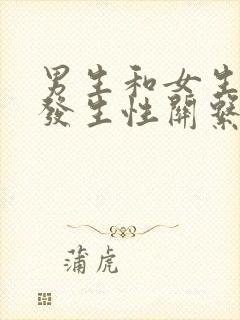 男生和女生
發生性關繫
蒲虎